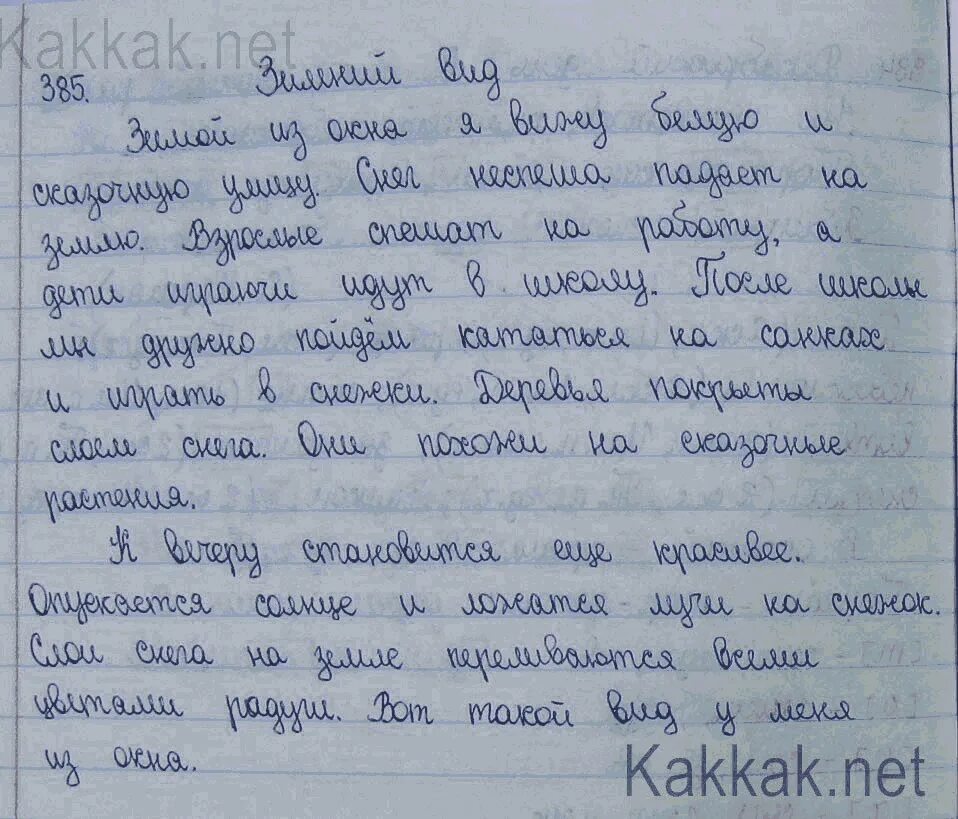 Kakkak.net
385. Зимний вид
Зимой из окна я вижу белую и
сказочную улицу. Снег неспеша падает на
землю. Взрослые спешат на работу, а
дети играючи идут в школу. После школы
мы дружно пойдём кататься на санках
и играть в снежки. Деревья покрыты
слоем снега. Они похожи на сказочные
растения.
К вечеру становится еще красивее.
Опускается солнце и ложатся лучи на снежок.
Слои снега на земле переливаются всеми
цветами радуги. Вот такой вид у меня
из окна.
Kakkak.net